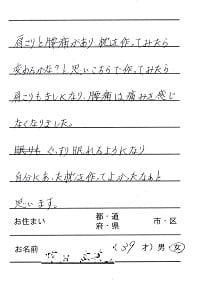 肩こりと腰痛があり、枕を作ってみたら
変わるかな?と思いこちらで作ってみたら
肩こりもましになり、腰痛は痛みを感じ
なくなりました。
眠りも ぐっすり眠れるようになり
自分にあった枕を作ってよかったなぁと
思います。
お住まい 都・道 府・県 市・区
お名前 (39 才) 男・女